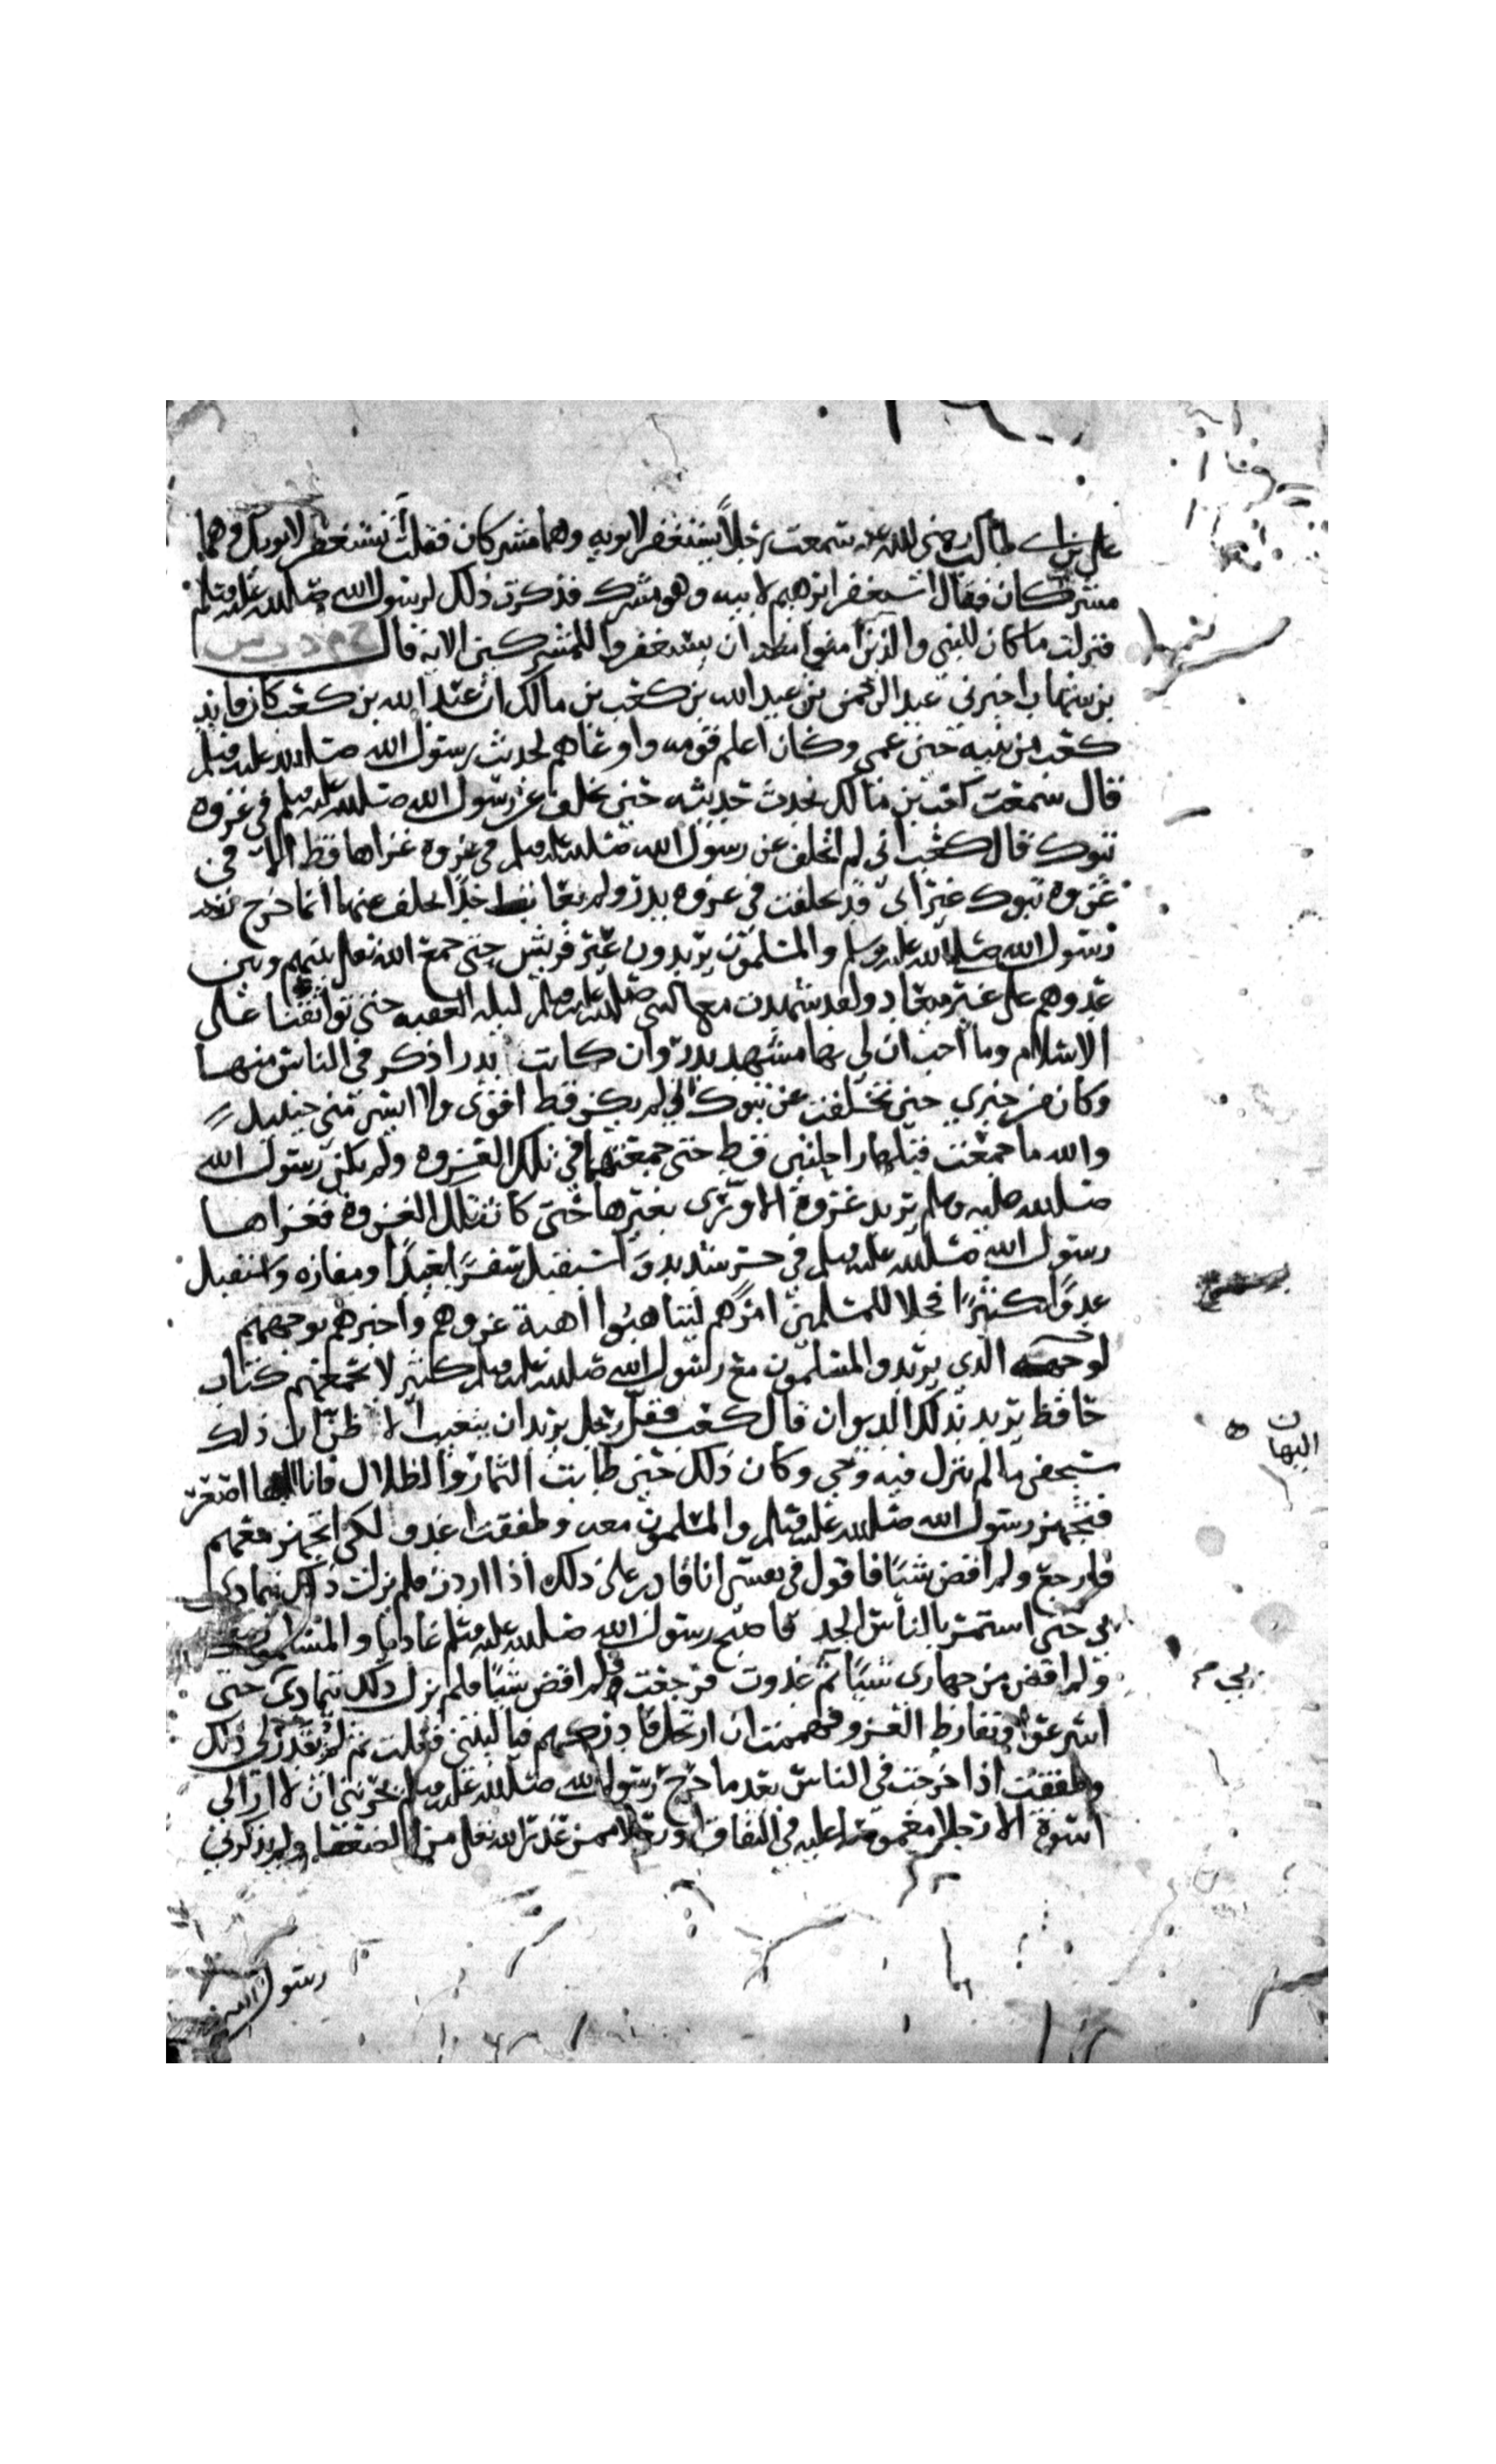 علي بن ابي طالب رضي الله عنه سمعت رجلاً يستغفر لابويه وهما مشركان فقلت تستغفر لابويك وهما
مشركان فقال استغفر ابرهيم لابيه وهو مشرك فذكرت ذلك لرسول الله صلى الله عليه وسلم
فنزلت ما كان للنبي والذين آمنوا معه ان يستغفروا للمشركين الاية قال
بن شهاب اخبرني عبد الرحمن بن عبد الله بن كعب بن مالك ان عبد الله بن كعب كان قايد
كعب من بنيه حين عمي وكان اعلم قومه واوعاهم لحديث رسول الله صلى الله عليه وسلم
قال سمعت كعب بن مالك يحدث حديثه حين تخلف عن رسول الله صلى الله عليه وسلم في غزوه
تبوك قال كعب اني لم اتخلف عن رسول الله صلى الله عليه وسلم في غزوه غزاها قط الا في
غزوه تبوك غير اني قد تخلفت في غزوه بدر ولم يعاتب احدا تخلف عنها انما خرج
رسول الله صلى الله عليه وسلم والمسلمون يريدون عير قريش حتى جمع الله تعالى بينهم وبين
عدوهم على غير ميعاد ولقد شهدت مع النبي صلى الله عليه وسلم ليله العقبه حين تواثقنا على
الاسلام وما احب ان لي بها مشهد بدر وان كانت بدرا ذكر في الناس منها
وكان من خبري حين تخلفت عن تبوك اني لم يكن قط اقوى ولا ايسر مني حينيذ
والله ما جمعت قبلها راحلتين قط حتى جمعتهما في تلك الغزوه ولم يكن رسول الله
صلى الله عليه وسلم يريد غزوة الا ورى بغيرها حتى كانت تلك الغزوة فغزاها
رسول الله صلى الله عليه وسلم في حر شديد واستقبل سفرًا بعيدًا ومفازه واستقبل
عدوًا كثيرًا فجلا للمسلمين امرهم ليتاهبوا اهبة غزوهم واخبرهم بوجههم
الذي يريد والمسلمون مع رسول الله صلى الله عليه وسلم كثير لا يجمعهم كتاب
حافظ يريد بذلك الديوان قال كعب فقل رجل يريد ان يتغيب الا ظن ان ذلك
سيخفى ما لم ينزل فيه وحي وكان ذلك حين طابت الثمار والظلال فانا اليها اصعر
فتجهز رسول الله صلى الله عليه وسلم والمسلمون معه وطفقت اغدو لكي اتجهز معهم
فارجع ولم اقض شيًا فاقول في نفسي انا قادر على ذلك اذا اردت فلم يزل ذلك يتمادى
بي حتى استمر بالناس الجد فاصبح رسول الله صلى الله عليه وسلم غاديا والمسلمون معه
ولم اقض من جهازي شيًا ثم غدوت فرجعت ولم اقض شيًا فلم يزل ذلك يتمادى حتى
اسرعوا وتفارط الغزو فهممت ان ارتحل فادركهم فيا ليتني فعلت ثم لم يقدر لي ذلك
وطفقت اذا خرجت في الناس بعد ما خرج رسول الله صلى الله عليه وسلم يحزنني ان لا ارى لي
اسوة الا رجلا مغموصا عليه في النفاق او رجلا ممن عذر الله تعالى من الضعفا ولم يذكرني
رسول الله